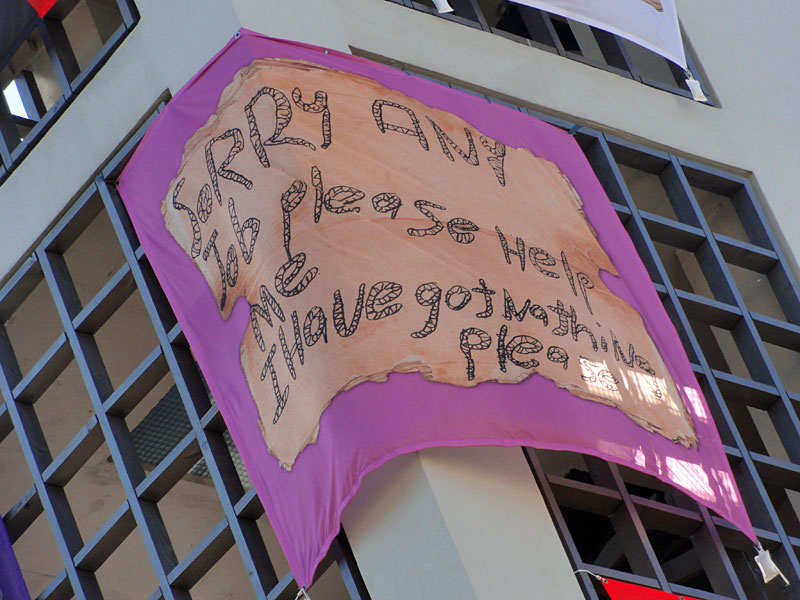 SoRRy ANy
Job please Help
Me please
I HAVE got Nothing
Please